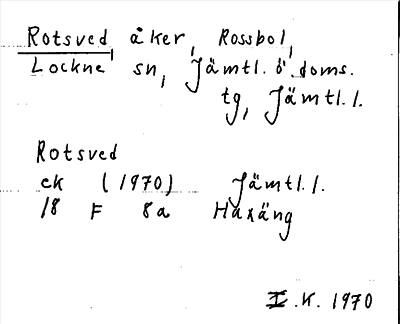 Rotsved åker, Rossbol,
Lockne sn, Jämtl. ö. doms.
tg, Jämtl. l.
Rotsved
ek (1970) Jämtl. l.
18 F 8a Haxäng
I.K. 1970